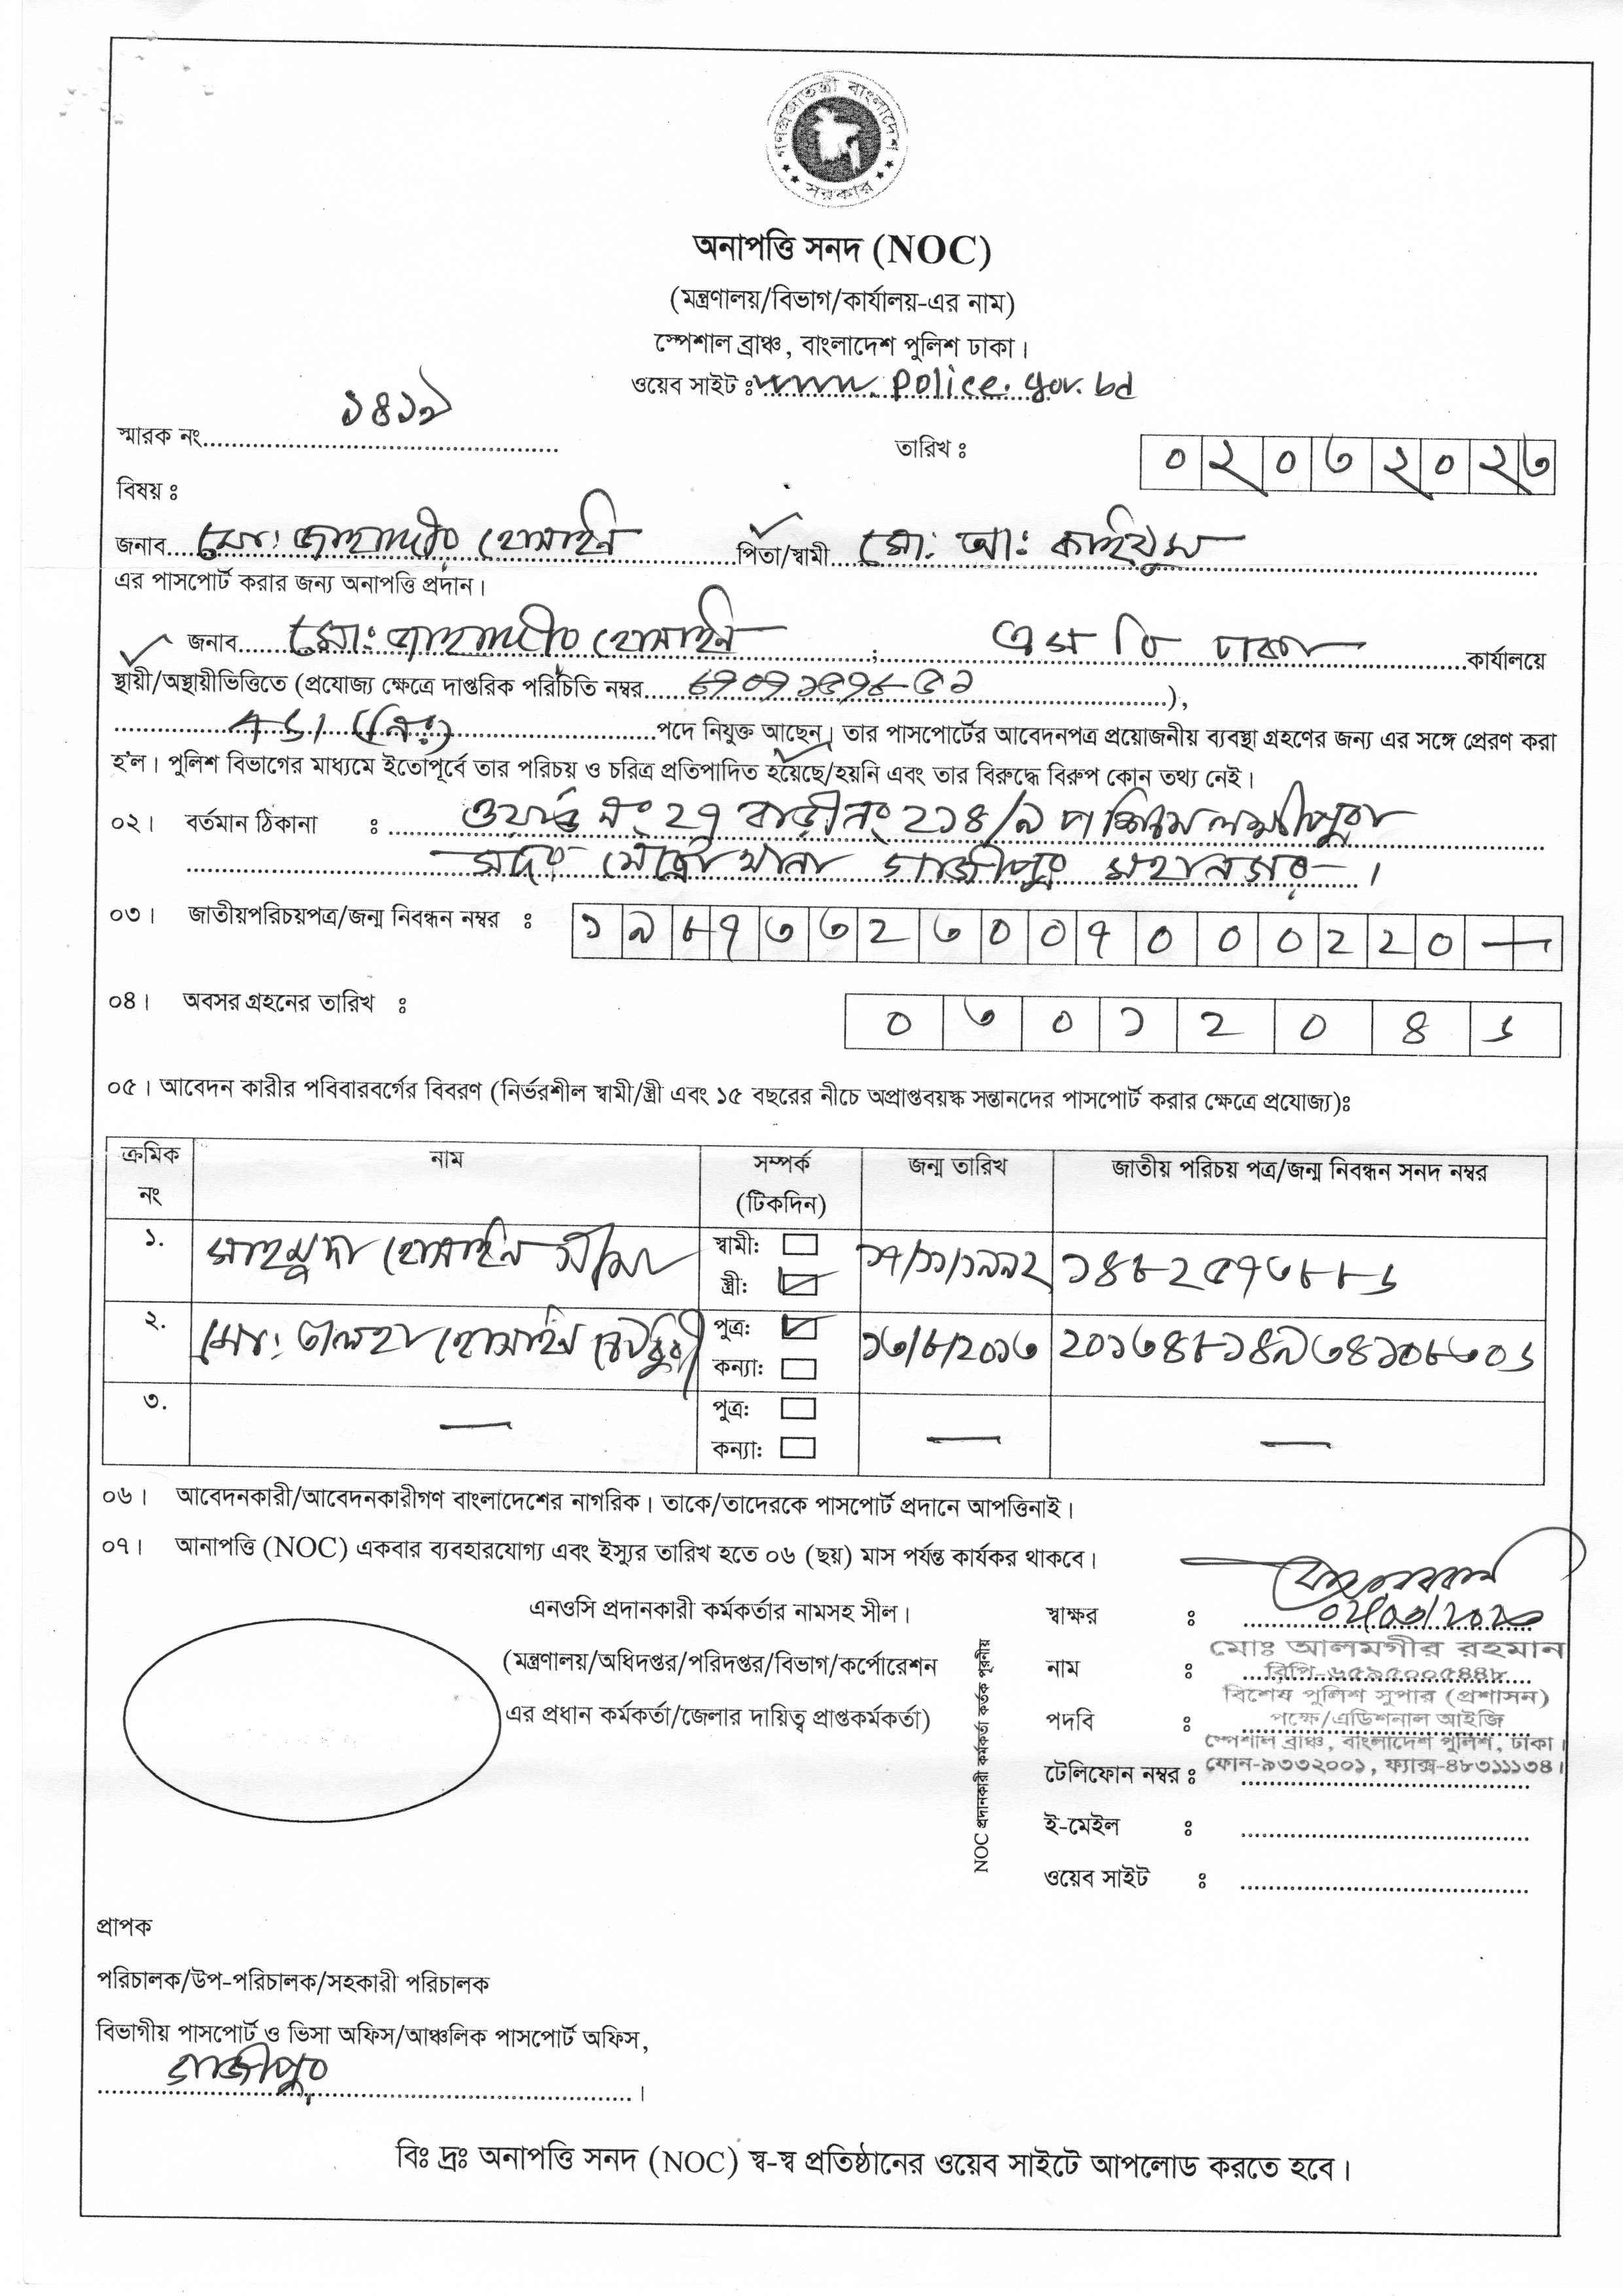 গণপ্রজাতন্ত্রী বাংলাদেশ
সরকার
অনাপত্তি সনদ (NOC)
(মন্ত্রণালয়/বিভাগ/কার্যালয়-এর নাম)
স্পেশাল ব্রাঞ্চ, বাংলাদেশ পুলিশ ঢাকা।
ওয়েব সাইট ঃ www.police.gov.bd
স্মারক নং ১৪১৯
তারিখ ঃ ০২০৩২০২৩
বিষয় ঃ
জনাব মো: জাহাঙ্গীর হোসাইন পিতা/স্বামী মো: আ: কাইয়ুম
এর পাসপোর্ট করার জন্য অনাপত্তি প্রদান।
জনাব মো: জাহাঙ্গীর হোসাইন ; এস বি ঢাকা কার্যালয়ে
স্থায়ী/অস্থায়ীভিত্তিতে (প্রযোজ্য ক্ষেত্রে দাপ্তরিক পরিচিতি নম্বর ),
(নিঃ) পদে নিযুক্ত আছেন। তার পাসপোর্টের আবেদনপত্র প্রয়োজনীয় ব্যবস্থা গ্রহণের জন্য এর সঙ্গে প্রেরণ করা
হ'ল। পুলিশ বিভাগের মাধ্যমে ইতোপূর্বে তার পরিচয় ও চরিত্র প্রতিপাদিত হয়েছে/হয়নি এবং তার বিরুদ্ধে বিরুপ কোন তথ্য নেই।
০২। বর্তমান ঠিকানা ঃ ওয়ার্ড নং ২৭ বাড়ী নং ২১৪/৯ পশ্চিম লক্ষ্মীপুরা
সদর মেট্রো থানা গাজীপুর মহানগর।
০৩। জাতীয়পরিচয়পত্র/জন্ম নিবন্ধন নম্বর ঃ ১৯৮৭৩৩২৬০০৭০০০২২০
০৪। অবসর গ্রহনের তারিখ ঃ ০৩০১২০৪৬
০৫। আবেদন কারীর পবিবারবর্গের বিবরণ (নির্ভরশীল স্বামী/স্ত্রী এবং ১৫ বছরের নীচে অপ্রাপ্তবয়স্ক সন্তানদের পাসপোর্ট করার ক্ষেত্রে প্রযোজ্য)ঃ
ক্রমিক নং নাম সম্পর্ক (টিকদিন) জন্ম তারিখ জাতীয় পরিচয় পত্র/জন্ম নিবন্ধন সনদ নম্বর
১. মাহমুদা হোসাইন সীমা স্বামী: স্ত্রী: ১৭/১১/১৯৯২ ১৪৮২৫৭৩৮৮৬
২. মো: তালহা হোসাইন পুত্র: কন্যা: ১৩/৮/২০১৩
৩. — পুত্র: কন্যা: — —
০৬। আবেদনকারী/আবেদনকারীগণ বাংলাদেশের নাগরিক। তাকে/তাদেরকে পাসপোর্ট প্রদানে আপত্তিনাই।
০৭। আনাপত্তি (NOC) একবার ব্যবহারযোগ্য এবং ইস্যুর তারিখ হতে ০৬ (ছয়) মাস পর্যন্ত কার্যকর থাকবে।
এনওসি প্রদানকারী কর্মকর্তার নামসহ সীল।
(মন্ত্রণালয়/অধিদপ্তর/পরিদপ্তর/বিভাগ/কর্পোরেশন
এর প্রধান কর্মকর্তা/জেলার দায়িত্ব প্রাপ্তকর্মকর্তা)
NOC প্রদানকারী কর্মকর্তা কর্তৃক পূরনীয়
স্বাক্ষর ঃ ০২/০৩/২০২৩
নাম ঃ মোঃ আলমগীর রহমান
বিপি-৬৫৯৫০০৫৪৪৮
বিশেষ পুলিশ সুপার (প্রশাসন)
পদবি ঃ পক্ষে/এডিশনাল আইজি
স্পেশাল ব্রাঞ্চ, বাংলাদেশ পুলিশ, ঢাকা।
টেলিফোন নম্বর ঃ ফোন-৯৩৩২০০১, ফ্যাক্স-৪৮৩১১১৩৪।
ই-মেইল ঃ
ওয়েব সাইট ঃ
প্রাপক
পরিচালক/উপ-পরিচালক/সহকারী পরিচালক
বিভাগীয় পাসপোর্ট ও ভিসা অফিস/আঞ্চলিক পাসপোর্ট অফিস,
গাজীপুর।
বিঃ দ্রঃ অনাপত্তি সনদ (NOC) স্ব-স্ব প্রতিষ্ঠানের ওয়েব সাইটে আপলোড করতে হবে।